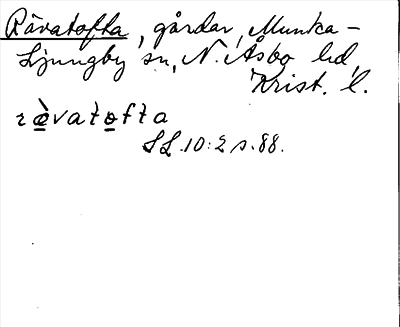 Rävatofta, gårdar, Munka-
Ljungby sn, N. Åsbo hd,
Krist. l.
ræ̀vatofta
SL.10:2 s.88.